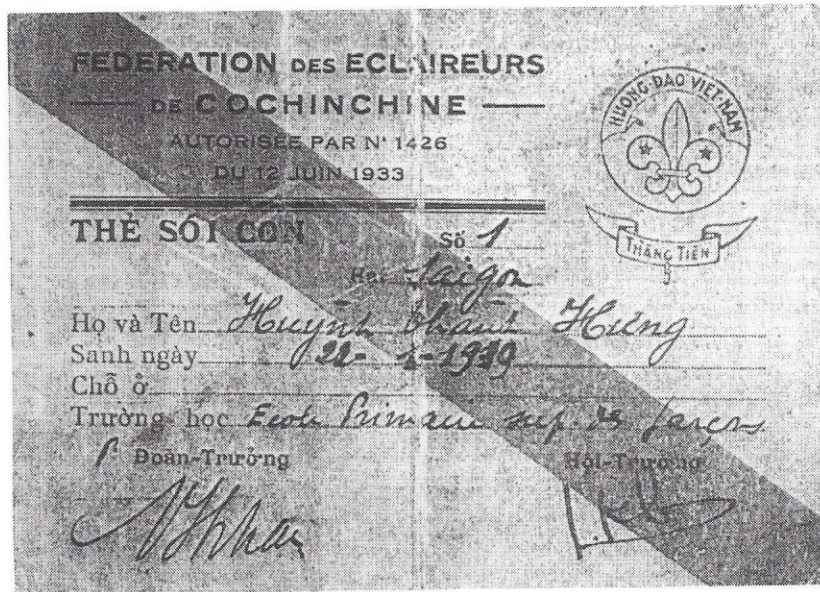 FEDERATION DES ECLAIREURS
DE COCHINCHINE
AUTORISÉE PAR N° 1426
DU 12 JUIN 1933
HUONG·ĐAO VIET·NAM
THẲNG TIẾN
THẺ SÓI CON
Số 1
Hội Saigon
Họ và Tên Huỳnh Thanh Hưng
Sanh ngày 22-1-1919
Chỗ ở
Trường học Ecole Primaire sup. de garçons
P. Đoàn-Trưởng
Hội-Trưởng